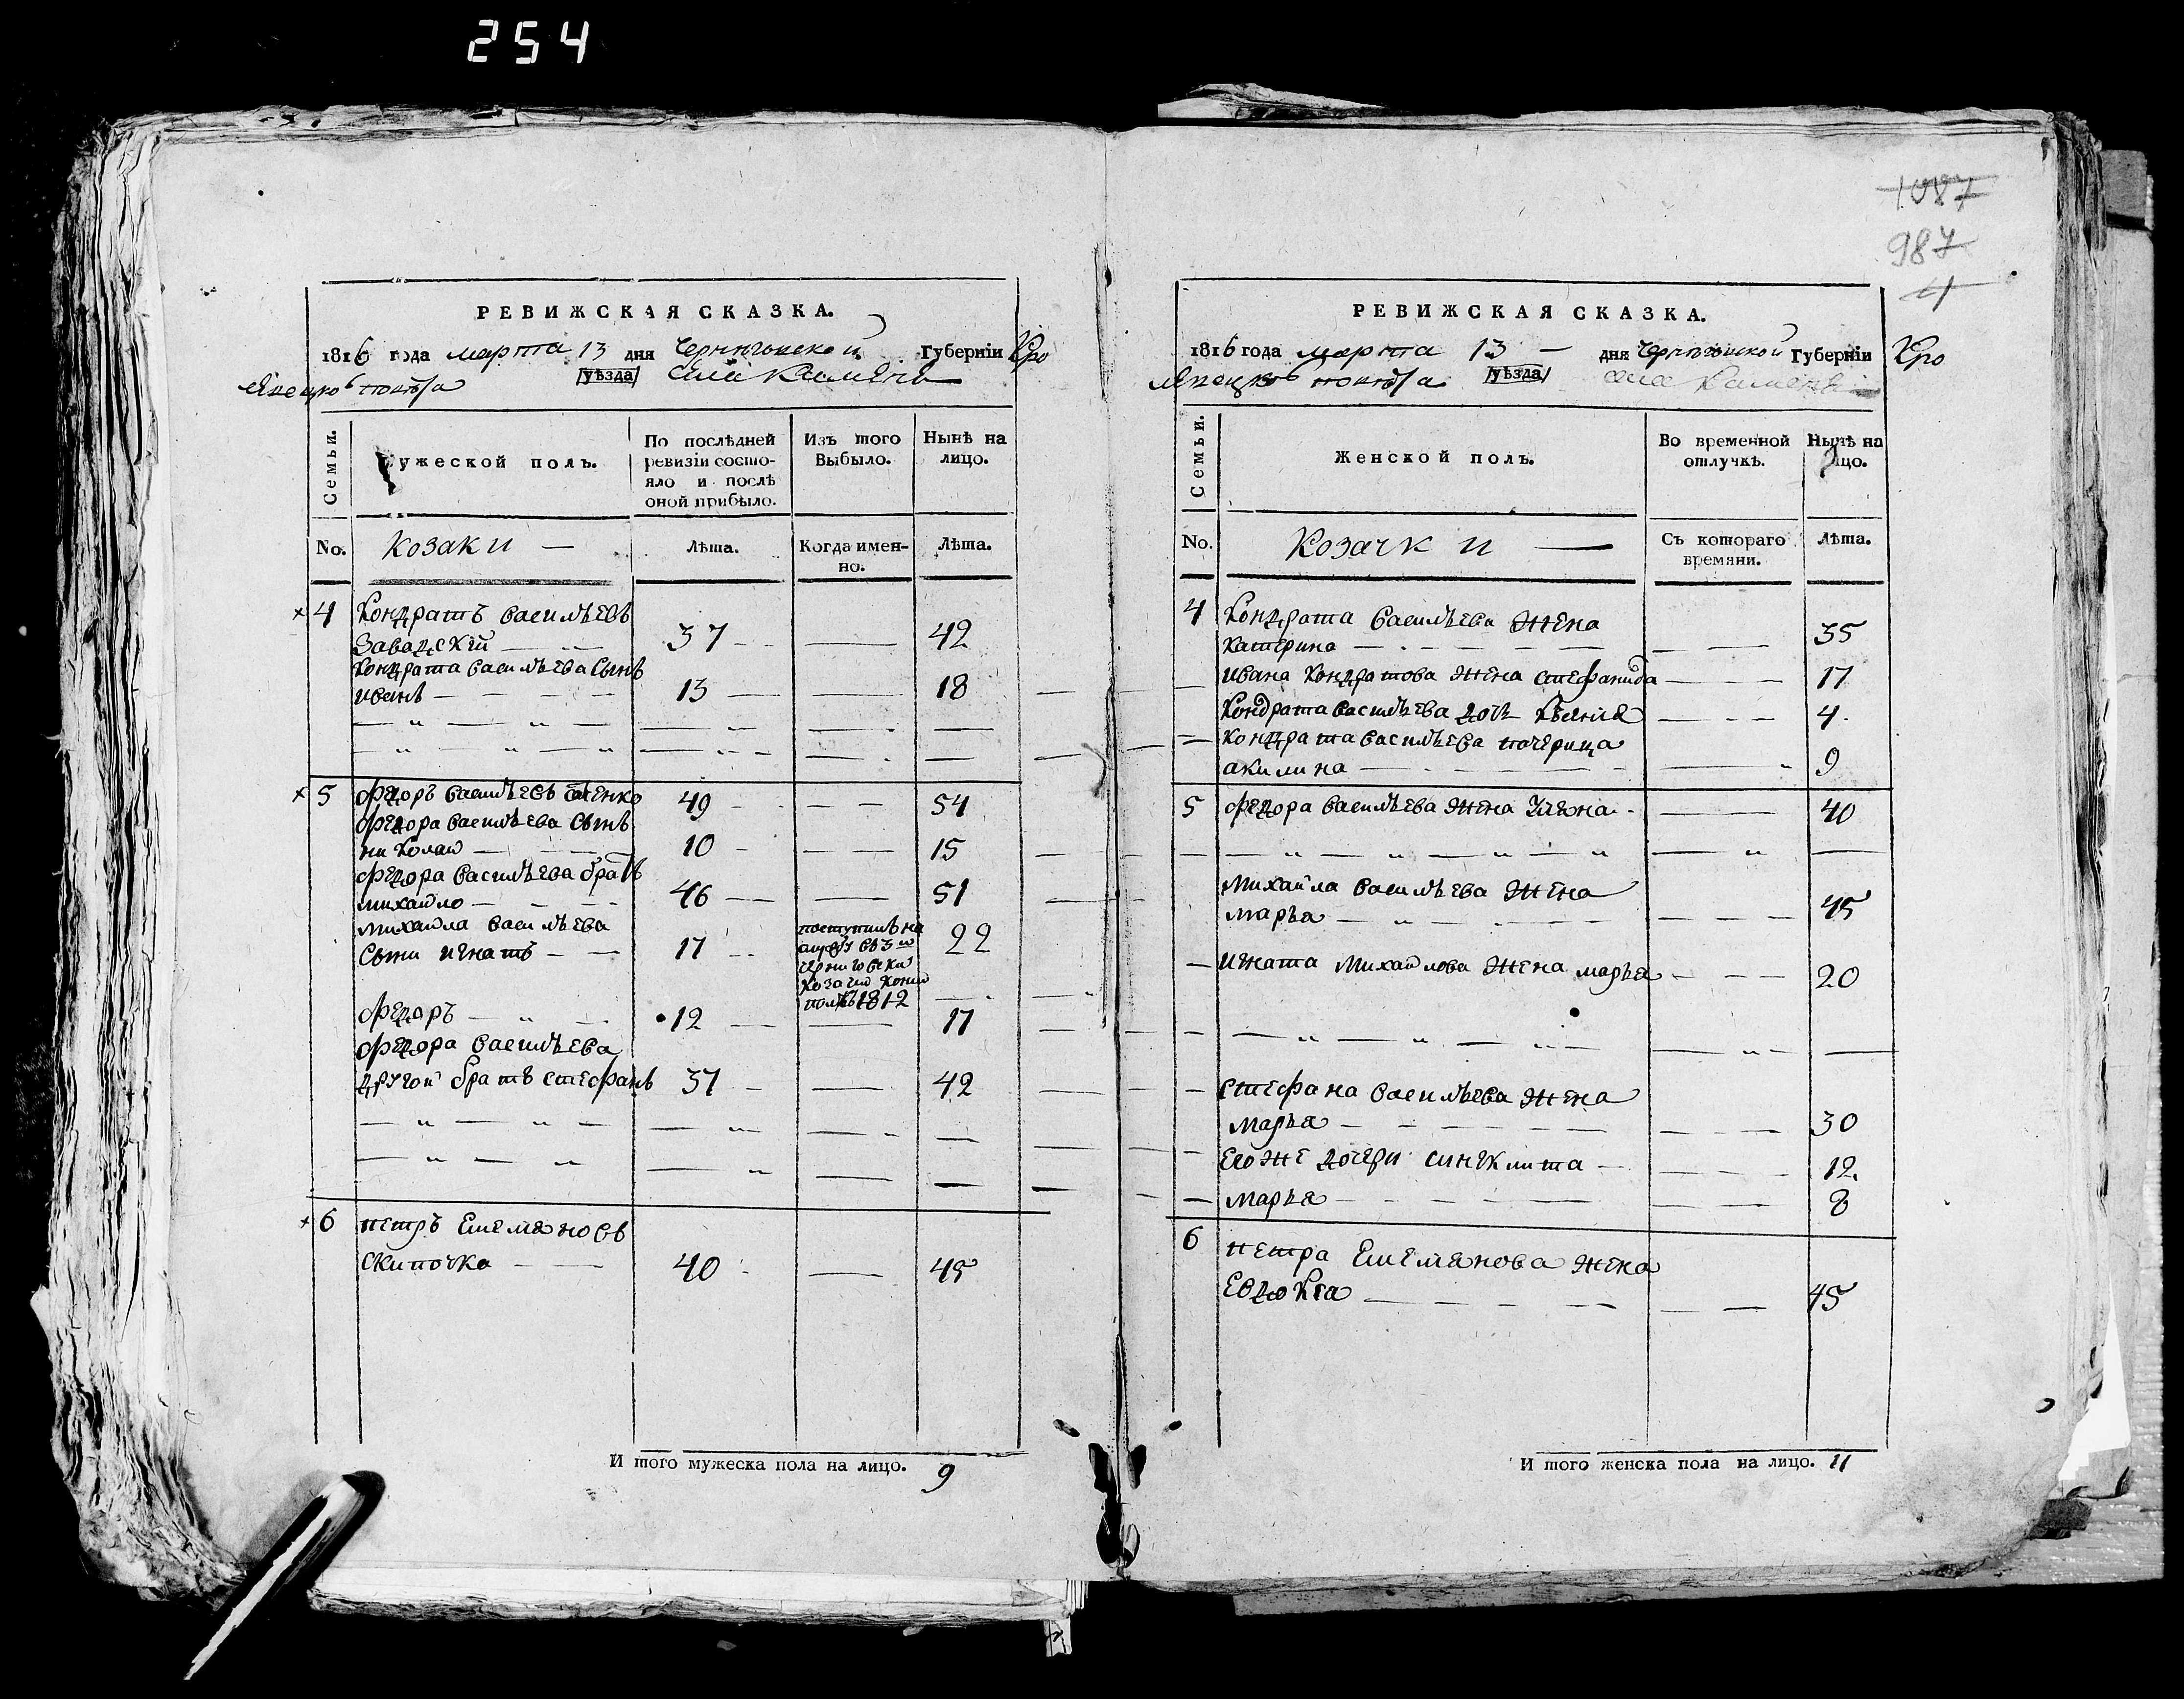 254
1087
987
4
РЕВИЖСКАЯ СКАЗКА.
1816 года марта 13 дня Черниговской Губерніи Кро
левецкого повѣта уѣзда села Камень
Семьи.
Мужеской полъ.
По послѣдней
ревизіи состо-
яло и послѣ
оной прибыло.
Изъ того
Выбыло.
Нынѣ на
лицо.
No. Козаки — Лѣта. Когда имен-
но. Лѣта.
4 Кондратъ Васильевъ
Завадскій 37 — 42
Кондрата Васильева Сынъ
иванъ 13 — 18
5 Федоръ Васильевъ 49 — 54
Федора Васильева Сынъ
николай 10 — 15
Федора Васильева братъ
михайло 46 — 51
михайла Васильева
Сыны игнатъ 17 22
поступилъ на
службу въ 3й
черниговски
козачий конни
полкъ 1812
Федоръ 12 — 17
Федора Васильева
другой братъ стефанъ 37 — 42
6 петръ Емельяновъ
скипочка 40 — 45
И того мужеска пола на лицо. 9
РЕВИЖСКАЯ СКАЗКА.
1816 года марта 13 — дня Черниговской Губерніи Кро
левецкого повѣта уѣзда села Камень
Семьи.
Женской полъ.
Во временной
отлучкѣ.
Нынѣ на
лицо.
No. Козачки — Съ котораго
времяни. Лѣта.
4 Кондрата Васильева жена
катерина 35
ивана Кондратова жена стефанида 17
Кондрата Васильева дочь 4
Кондрата Васильева пачерица
акилина 9
5 Федора Васильева жена 40
Михайла Васильева жена
марья 45
игната Михайлова жена марья 20
стефана Васильева жена
марья 30
Его же дочери синклита 12
марья 8
6 петра Емельянова жена
Евдокія 45
И того женска пола на лицо. 11